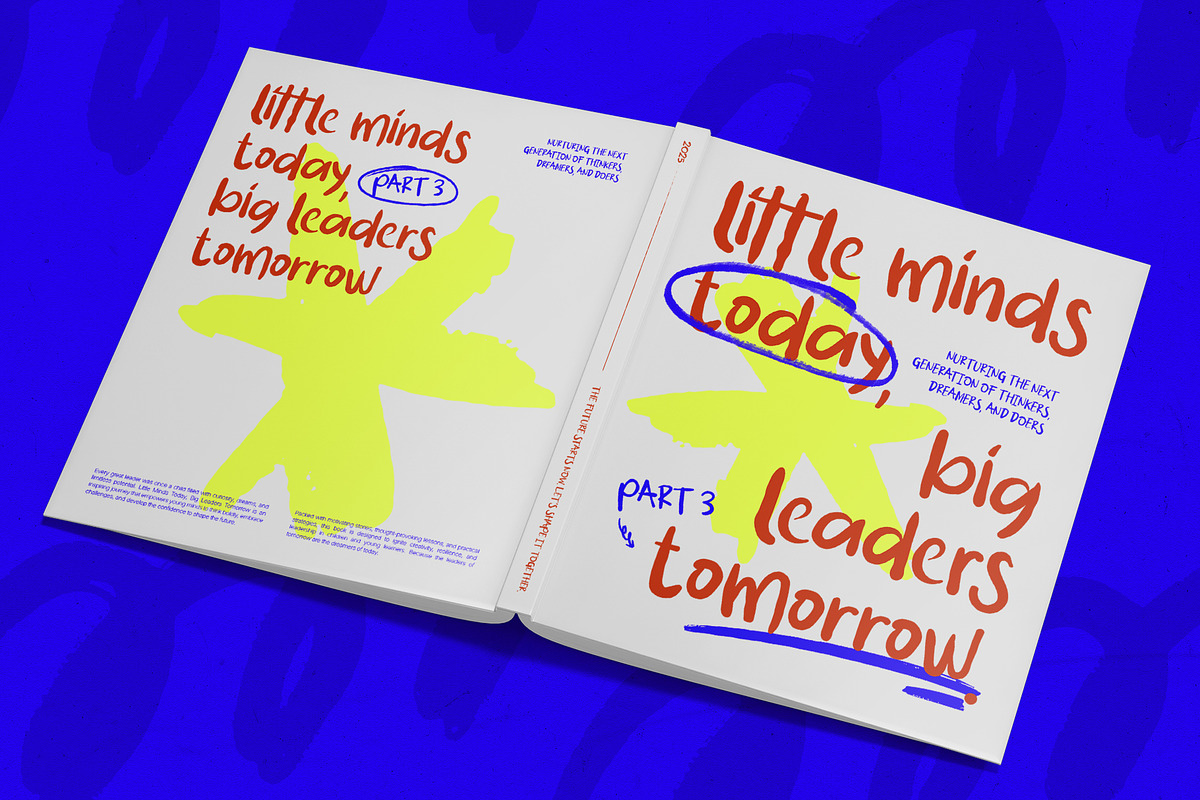 little minds
today, PART 3
big leaders
tomorrow
NURTURING THE NEXT
GENERATION OF THINKERS,
DREAMERS, AND DOERS
Every great leader was once a child filled with curiosity, dreams, and
limitless potential. Little Minds Today, Big Leaders Tomorrow is an
inspiring journey that empowers young minds to think boldly, embrace
challenges, and develop the confidence to shape the future.
Packed with motivating stories, thought-provoking lessons, and practical
strategies, this book is designed to ignite creativity, resilience, and
leadership in children and young learners. Because the leaders of
tomorrow are the dreamers of today.
2025
THE FUTURE STARTS NOW. LET'S SHAPE IT TOGETHER.
little minds
today,
NURTURING THE NEXT
GENERATION OF THINKERS,
DREAMERS, AND DOERS
big
PART 3
leaders
tomorrow